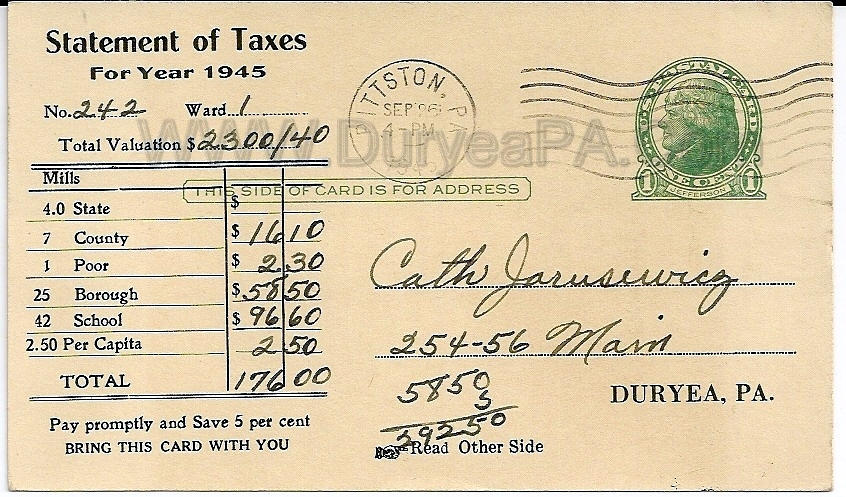 Statement of Taxes
For Year 1945
No. 242 Ward 1
Total Valuation $ 2300/40
Mills
4.0 State $
7 County $ 16 10
1 Poor $ 2 30
25 Borough $ 58 50
42 School $ 96 60
2.50 Per Capita 2 50
TOTAL 176 00
Pay promptly and Save 5 per cent
BRING THIS CARD WITH YOU
www.DuryeaPA.
PITTSTON, PA
SEP 26
4-PM
THIS SIDE OF CARD IS FOR ADDRESS
U.S. POSTAL CARD
1 JEFFERSON 1
Cath Jarusewicz
254-56 Main
DURYEA, PA.
5850
5
29250
Read Other Side